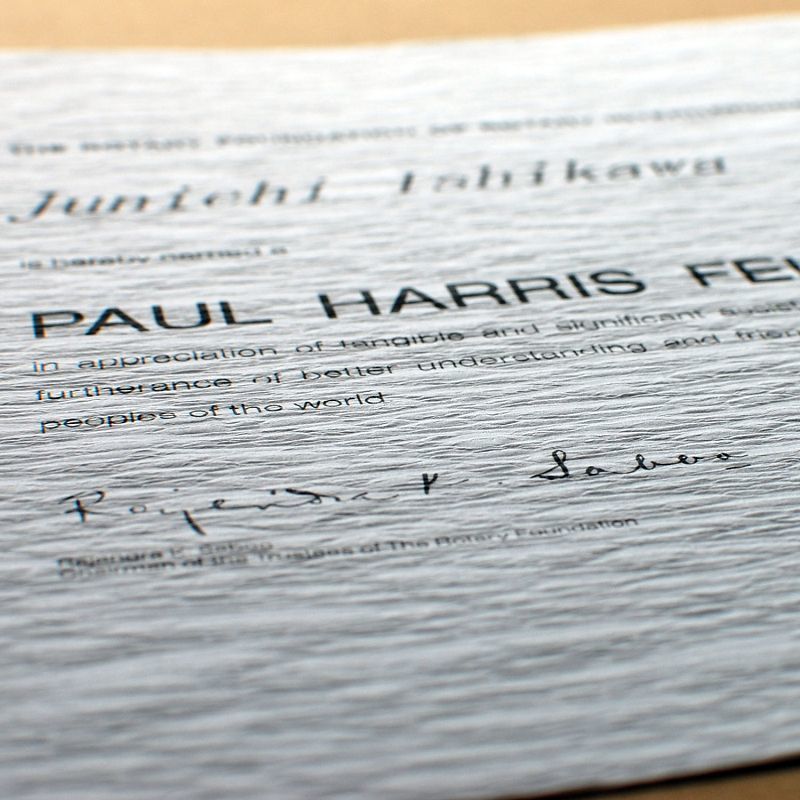 THE ROTARY FOUNDATION OF ROTARY INTERNATIONAL
Junichi Ishikawa
is hereby named a
PAUL HARRIS FEL
in appreciation of tangible and significant assist
furtherance of better understanding and frien
peoples of the world
Rajendra K. Saboo
Rajendra K. Saboo
Chairman of the Trustees of The Rotary Foundation